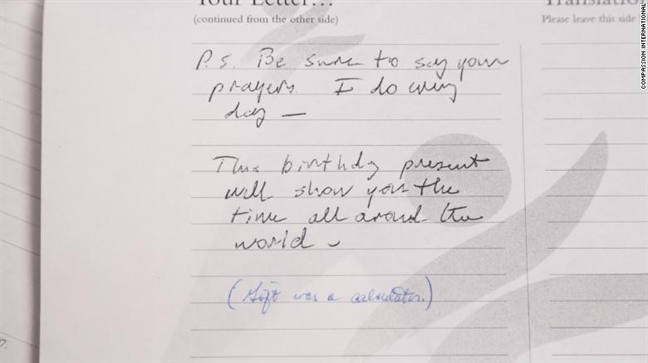 Your Letter...
(continued from the other side)
Translation
Please leave this side
P.S. Be sure to say your
prayers I do every
day —
This birthday present
will show you the
time all around the
world -
(Gift was a calculator.)
COMPASSION INTERNATIONAL